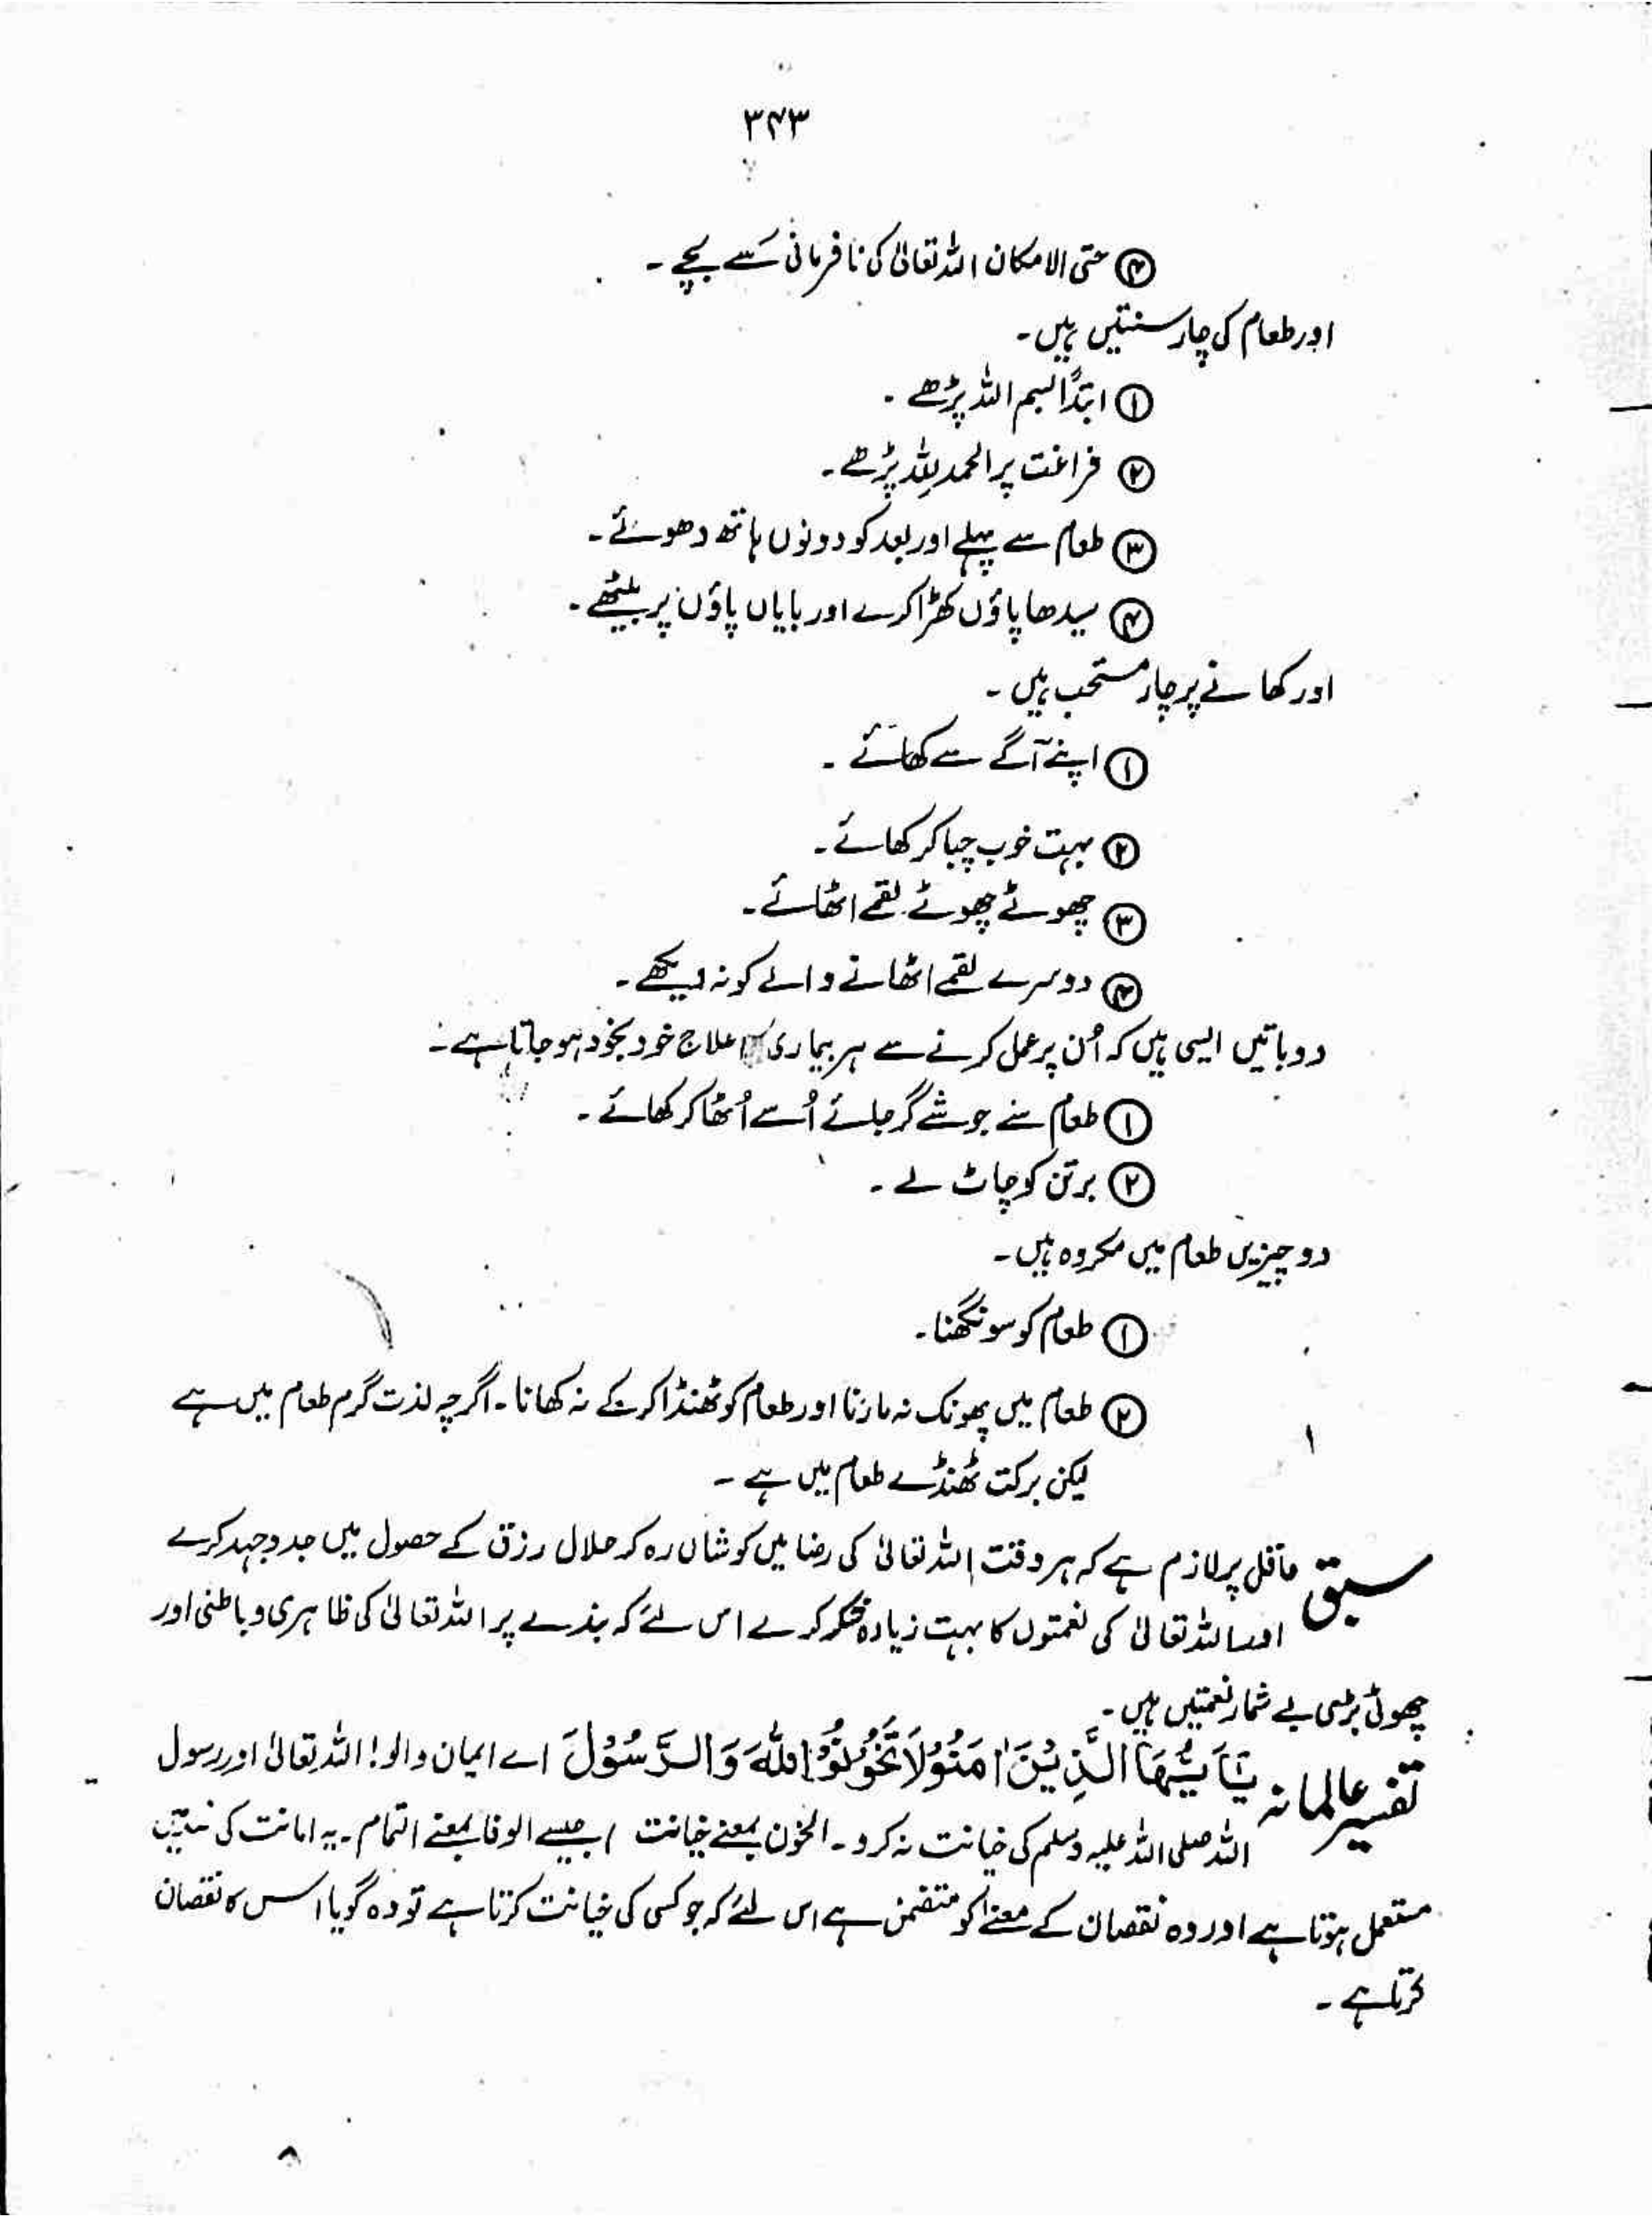 ۳۴۳
④ حتی الامکان اللہ تعالیٰ کی نافرمانی سے بچے ۔
اور طعام کی چار سنتیں ہیں ۔
① ابتداً بسم اللہ پڑھے ۔
② فراغت پر الحمد للہ پڑھے ۔
③ طعام سے پہلے اور بعد کو دونوں ہاتھ دھوئے ۔
④ سیدھا پاؤں کھڑا کرے اور بایاں پاؤں پر بیٹھے ۔
اور کھانے پر چار مستحب ہیں ۔
① اپنے آگے سے کھائے ۔
② بہت خوب چبا کر کھائے ۔
③ چھوٹے چھوٹے لقمے اٹھائے ۔
④ دوسرے لقمے اٹھانے والے کو نہ دیکھے ۔
دو باتیں ایسی ہیں کہ اُن پر عمل کرنے سے ہر بیماری کا علاج خود بخود ہو جاتا ہے ۔
① طعام سے جو شے گر جائے اُسے اُٹھا کر کھائے ۔
② برتن کو چاٹ لے ۔
دو چیزیں طعام میں مکروہ ہیں ۔
① طعام کو سونگھنا ۔
② طعام میں پھونک نہ مارنا اور طعام کو ٹھنڈا کر کے نہ کھانا ۔ اگرچہ لذت گرم طعام میں ہے
لیکن برکت ٹھنڈے طعام میں ہے ۔
سبق عاقل پر لازم ہے کہ ہر وقت اللہ تعالیٰ کی رضا میں کوشاں رہ کر حلال رزق کے حصول میں جدوجہد کرے
اور اللہ تعالیٰ کی نعمتوں کا بہت زیادہ شکر کرے اس لئے کہ بندے پر اللہ تعالیٰ کی ظاہری و باطنی اور
چھوٹی بڑی بے شمار نعمتیں ہیں ۔
تفسیر عالمانہ یٰٓاَیُّھَا الَّذِیْنَ اٰمَنُوْا لَا تَخُوْنُوا اللّٰہَ وَالرَّسُوْلَ اے ایمان والو! اللہ تعالیٰ اور رسول
اللہ صلی اللہ علیہ وسلم کی خیانت نہ کرو ۔ الخون بمعنے خیانت جیسے الوفا بمعنے اتمام ۔ یہ امانت کی
مستعمل ہوتا ہے اور وہ نقصان کے معنے کو متضمن ہے اس لئے کہ جو کسی کی خیانت کرتا ہے تو وہ گویا اس کا نقصان
کرتا ہے ۔